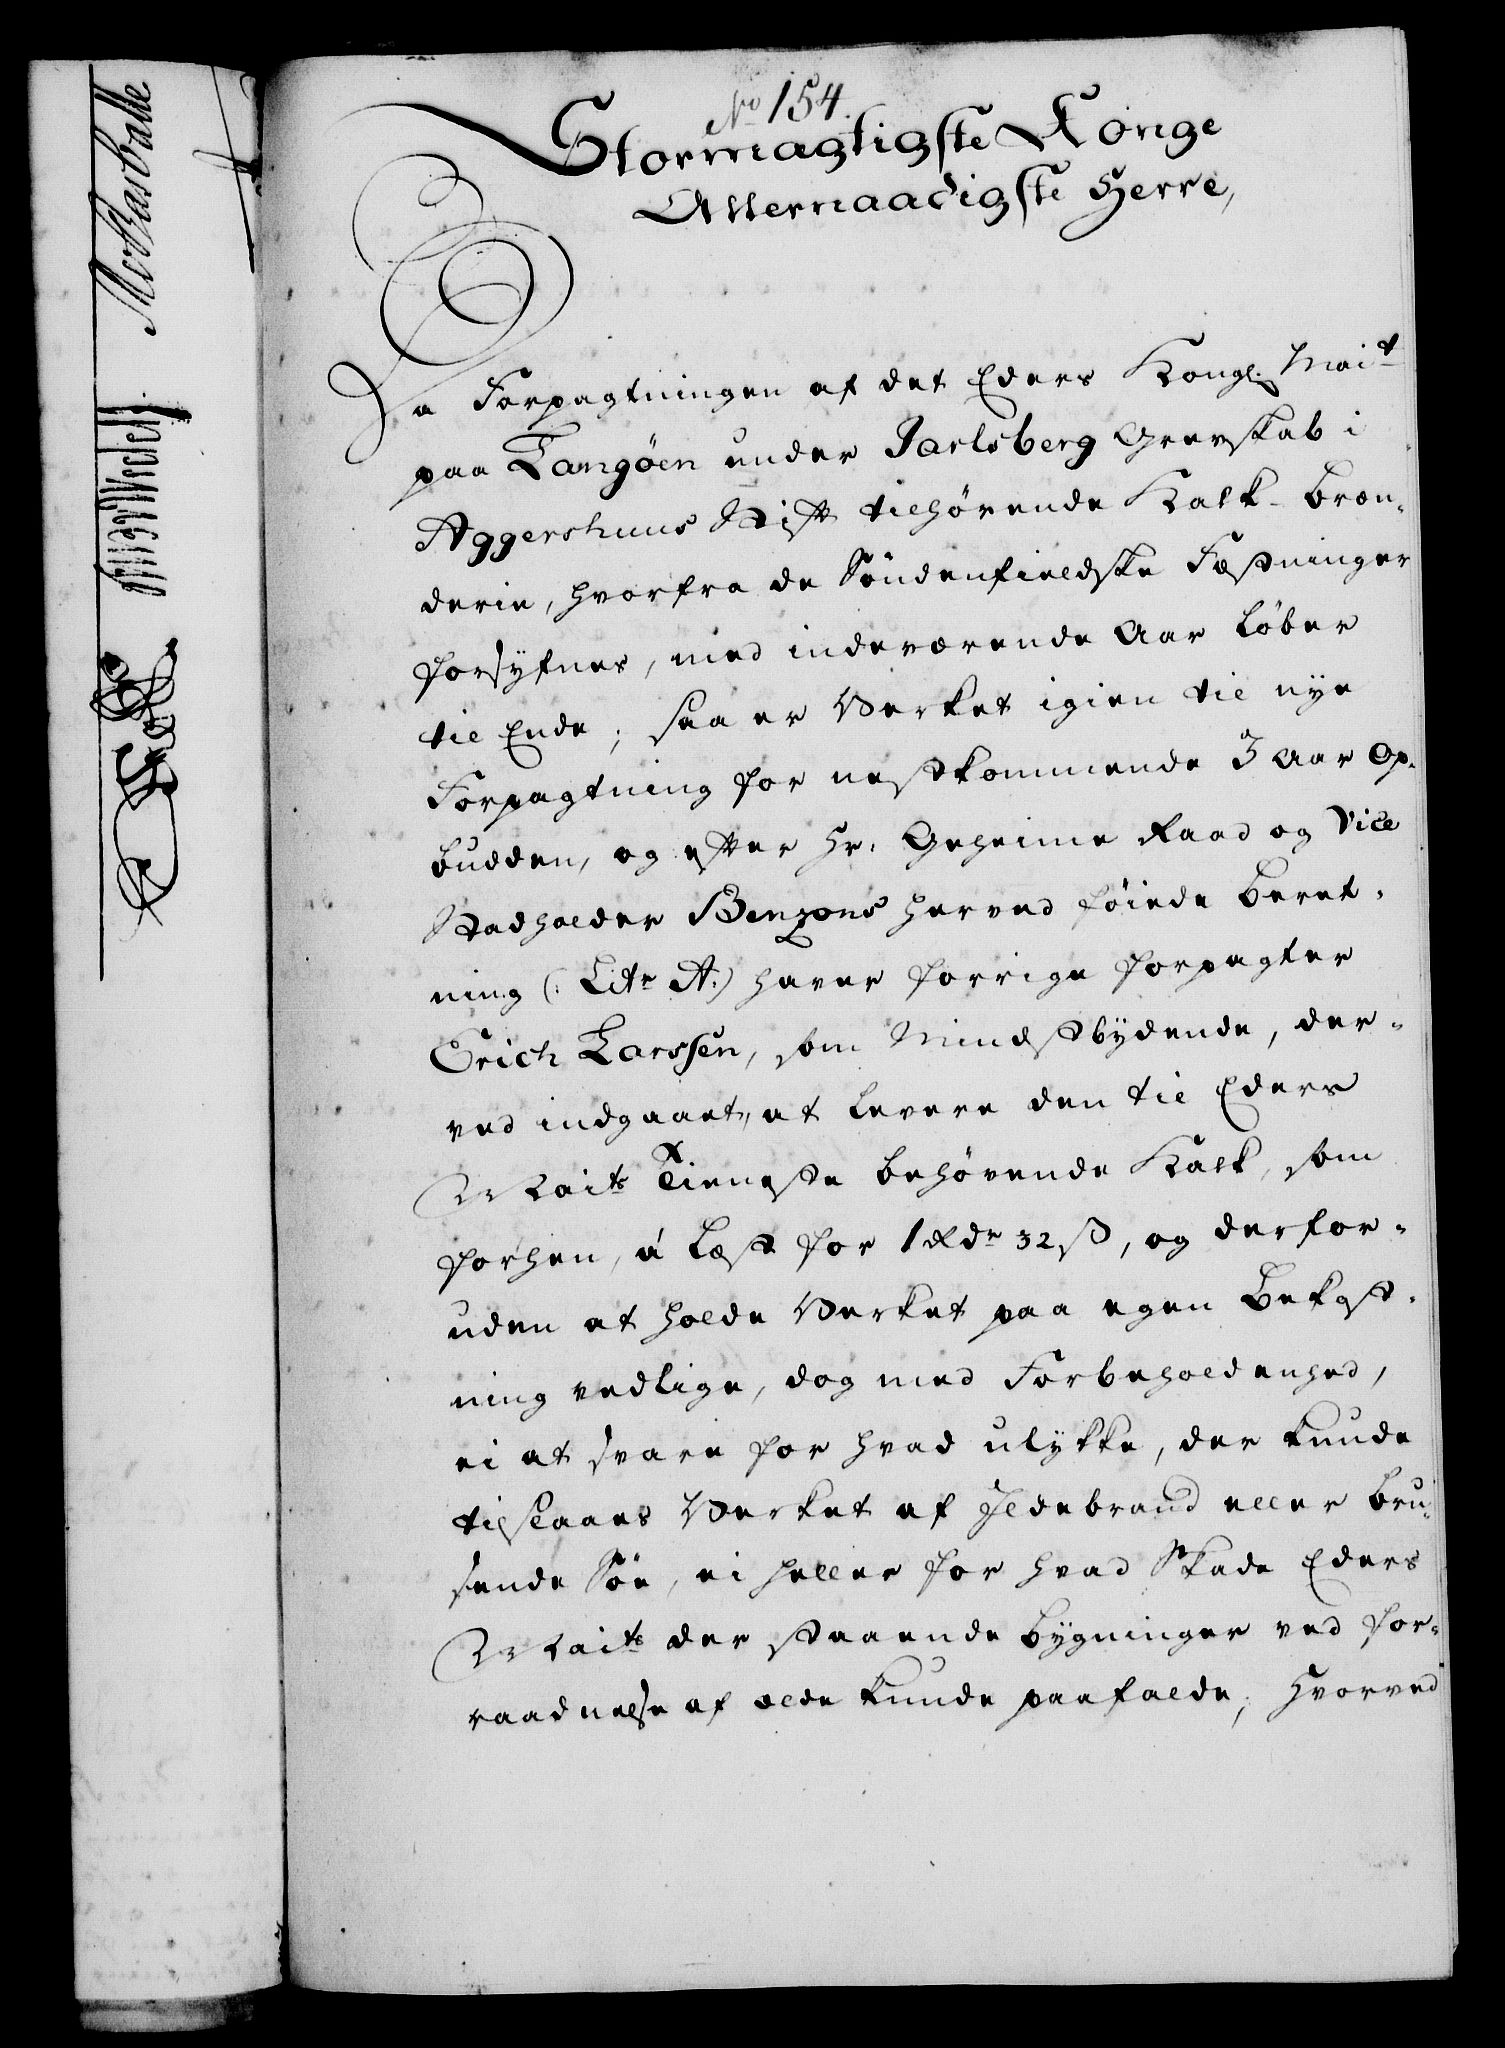 No 154.
Stormagtigste Konge
Allernaadigste Herre,
Da Forpagtningen af det Eders Kongl. Mait
paa Langöen under Jarlsberg Grevskab i
Aggershuus Stift tilhörende Kalk-bræn-
derie, hvorfra de Söndenfieldske Fæstninger
forsÿfnes, med indeværende Aar löber
til Ende; saa er Verket igien til nÿe
Forpagtning for nestkommende 3 Aar op-
budden, og efter Hr. Geheime Raad og Vice
Stadholder Benzons herved föiede beret-
ning (: Litr A:) haver forrige forpagter
Erich Larssen, som Mindstbÿdende, der-
ved indgaaet, at levere den til Eders
Maits Tieneste behövende Kalk, som
forhen, á Læst for 1 Rdr 32 ß, og derfor-
uden at holde Verket paa egen Bekost-
ning vedlige, dog med Forbeholdenhed,
ei at svare for hvad ulÿkke, der kunde
tilslaaes Verket af Ildebrand eller bru-
sende Söe, ei heller for hvad Skade Eders
Maits der staaende bÿgninger ved for-
raadnelse af ælde kunde paafalde; hvorved